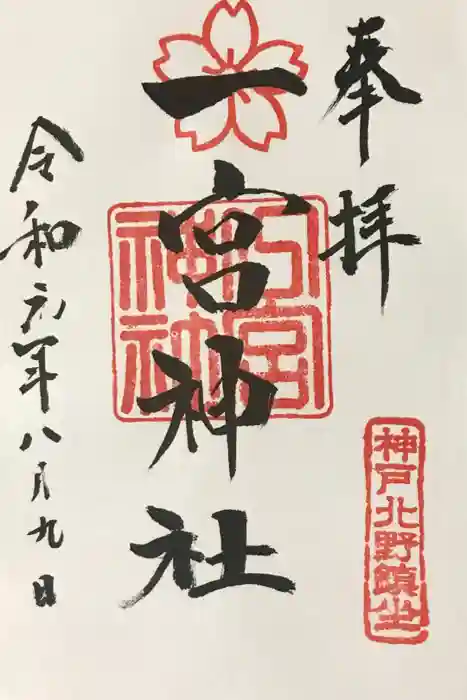 奉拝
一宮神社
神戸北野鎮坐
令和元年八月九日